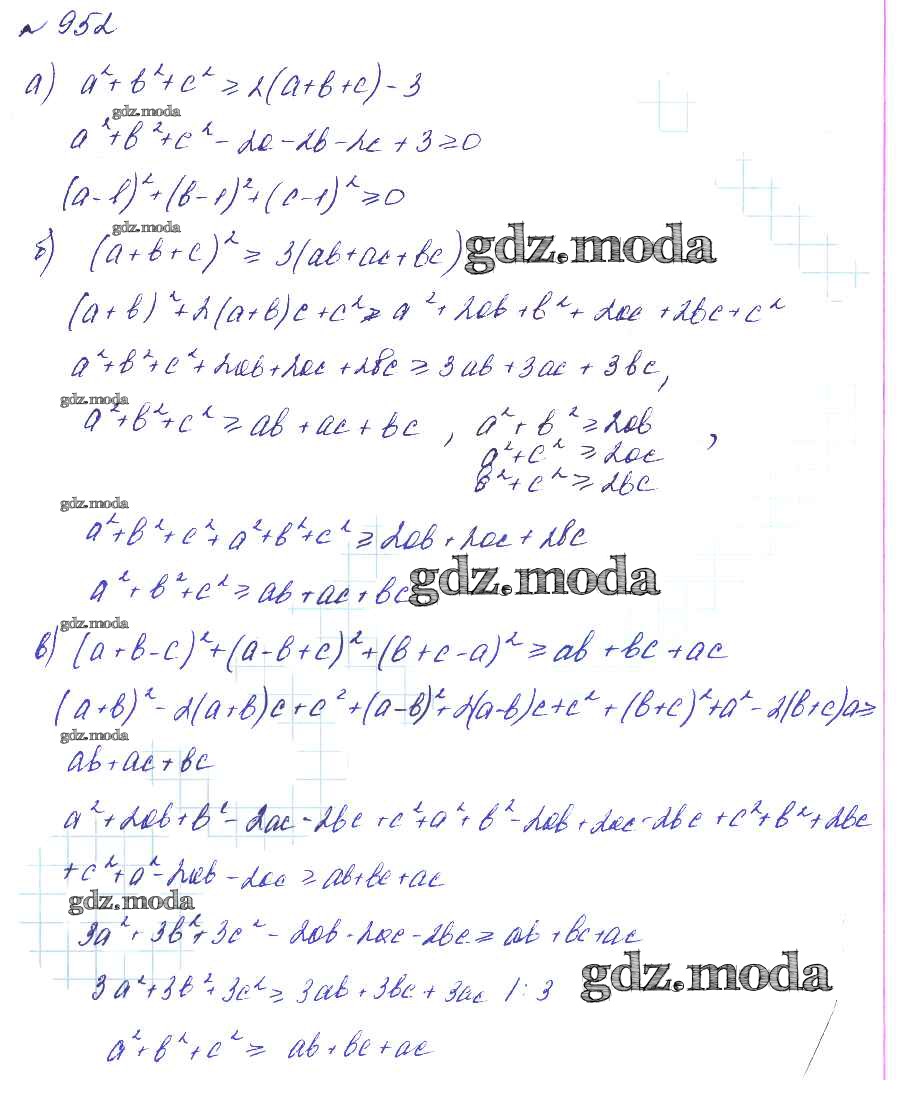 № 952
а) a² + b² + c² ≥ 2(a+b+c) - 3
gdz.moda
a² + b² + c² - 2a - 2b - 2c + 3 ≥ 0
(a-1)² + (b-1)² + (c-1)² ≥ 0
gdz.moda
б) (a+b+c)² ≥ 3(ab+ac+bc)
gdz.moda
(a+b)² + 2(a+b)c + c² ≥ a² + 2ab + b² + 2ac + 2bc + c²
a² + b² + c² + 2ab + 2ac + 2bc ≥ 3ab + 3ac + 3bc,
gdz.moda
a² + b² + c² ≥ ab + ac + bc , a² + b² ≥ 2ab ,
a² + c² ≥ 2ac
b² + c² ≥ 2bc
gdz.moda
a² + b² + c² + a² + b² + c² ≥ 2ab + 2ac + 2bc
a² + b² + c² ≥ ab + ac + bc
gdz.moda
gdz.moda
в) (a+b-c)² + (a-b+c)² + (b+c-a)² ≥ ab + bc + ac
(a+b)² - 2(a+b)c + c² + (a-b)² + 2(a-b)c + c² + (b+c)² + a² - 2(b+c)a ≥
gdz.moda
ab + ac + bc
a² + 2ab + b² - 2ac - 2bc + c² + a² + b² - 2ab + 2ac - 2bc + c² + b² + 2bc
+ c² + a² - 2ab - 2ac ≥ ab + bc + ac
gdz.moda
3a² + 3b² + 3c² - 2ab - 2ac - 2bc ≥ ab + bc + ac
3a² + 3b² + 3c² ≥ 3ab + 3bc + 3ac |: 3
gdz.moda
a² + b² + c² ≥ ab + bc + ac